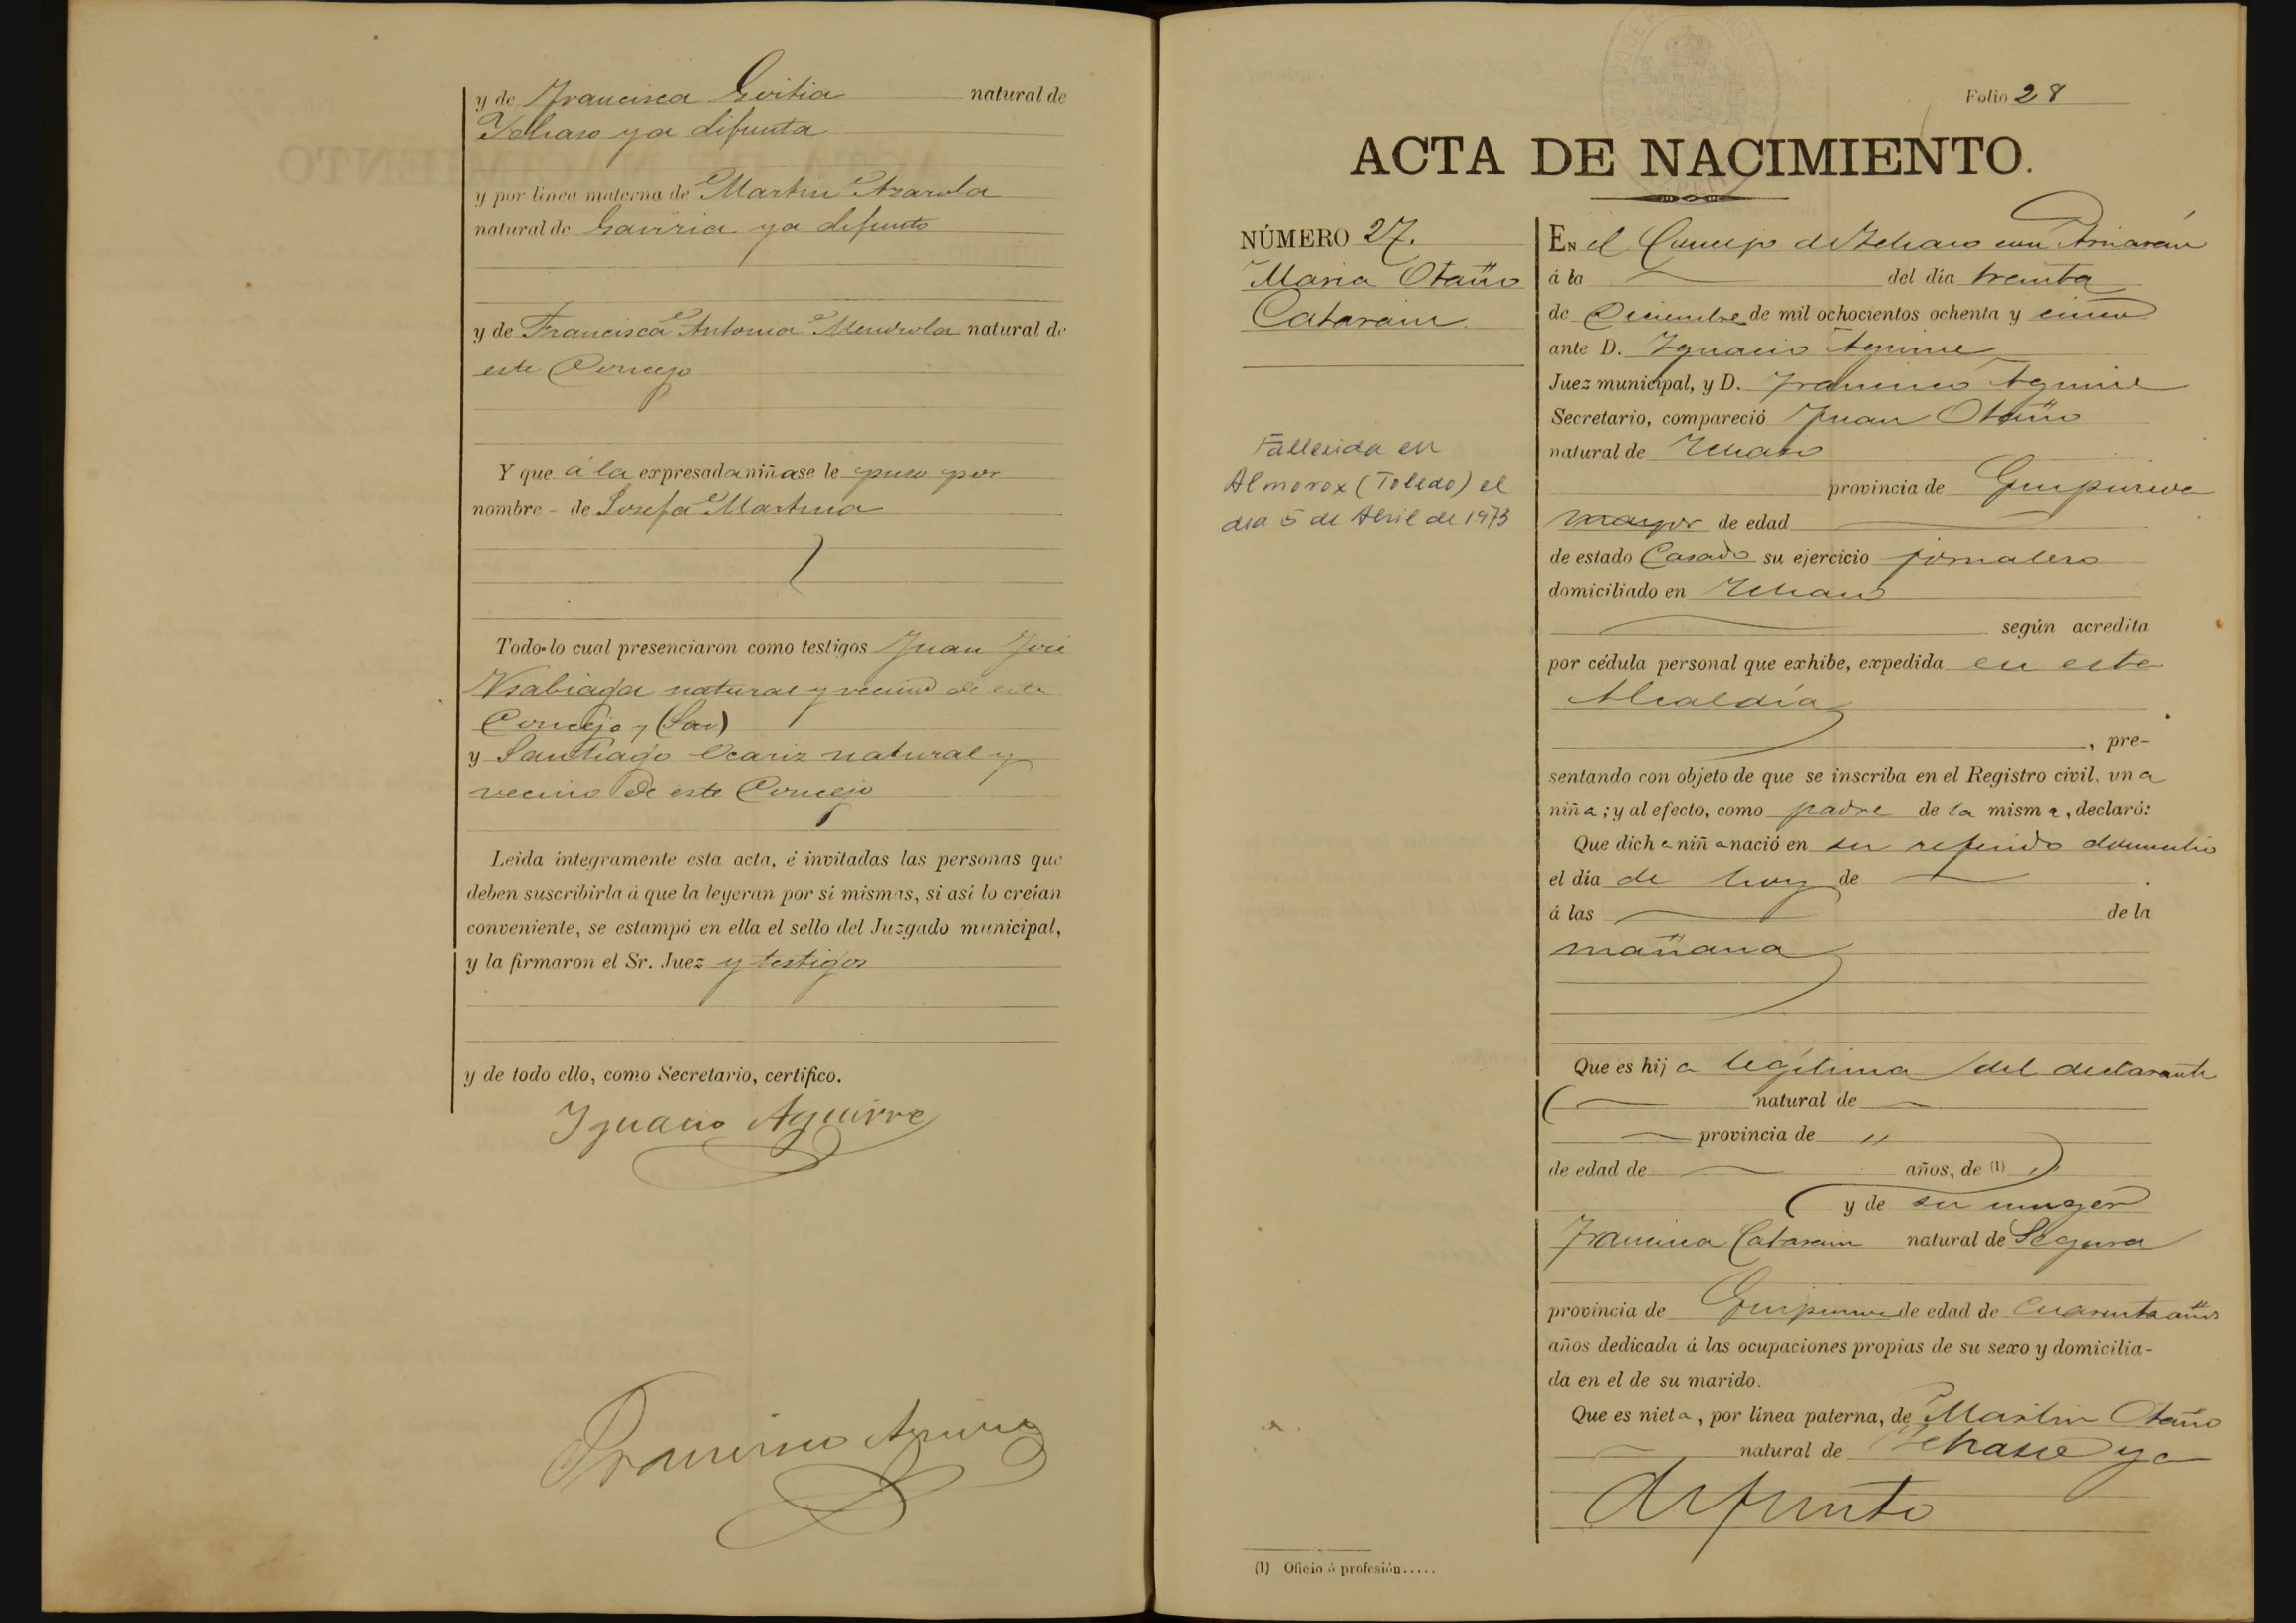 y de Francisca Goitia natural de
Ichaso ya difunta
y por línea materna de Martin Azarola
natural de Gaviria ya difunto
y de Francisca Antonia Mendiola natural de
este Concejo
Y que á la expresada niña se le puso por
nombre - de Josefa Martina
Todo lo cual presenciaron como testigos Juan José
natural y vecino de este
Concejo y (San)
y Santiago Ocariz natural y
vecino de este Concejo
Leida integramente esta acta, é invitadas las personas que
deben suscribirla á que la leyeran por si mismas, si así lo creían
conveniente, se estampó en ella el sello del Juzgado municipal,
y la firmaron el Sr. Juez y testigos
y de todo ello, como Secretario, certifico.
Ygnacio Aguirre
Francisco Aguirre
Folio 28
ACTA DE NACIMIENTO.
NÚMERO 27.
Maria Otaño
Catarain
Fallecida en
Almorox (Toledo) el
dia 5 de Abril de 1973
En el Concejo de Ichaso con Arriarán
á la del día treinta
de Diciembre de mil ochocientos ochenta y cinco
ante D. Ygnacio Aguirre
Juez municipal, y D. Francisco Aguirre
Secretario, compareció Juan Otaño
natural de Ichaso
provincia de Guipuzcoa
mayor de edad
de estado Casado su ejercicio jornalero
domiciliado en Ichaso
según acredita
por cédula personal que exhibe, expedida en esta
Alcaldía
, pre-
sentando con objeto de que se inscriba en el Registro civil, una
niña; y al efecto, como padre de la misma, declaró:
Que dicha niña nació en su referido domicilio
el día de hoy de
á las de la
mañana
Que es hija legítima del declarante
natural de
provincia de "
de edad de años, de (1) "
y de su muger
Francisca Catarain natural de Segura
provincia de Guipuzcoa de edad de cuarenta años
años dedicada á las ocupaciones propias de su sexo y domicilia-
da en el de su marido.
Que es nieta, por línea paterna, de Martin Otaño
natural de Ichaso ya
difunto
(1) Oficio ó profesión.....